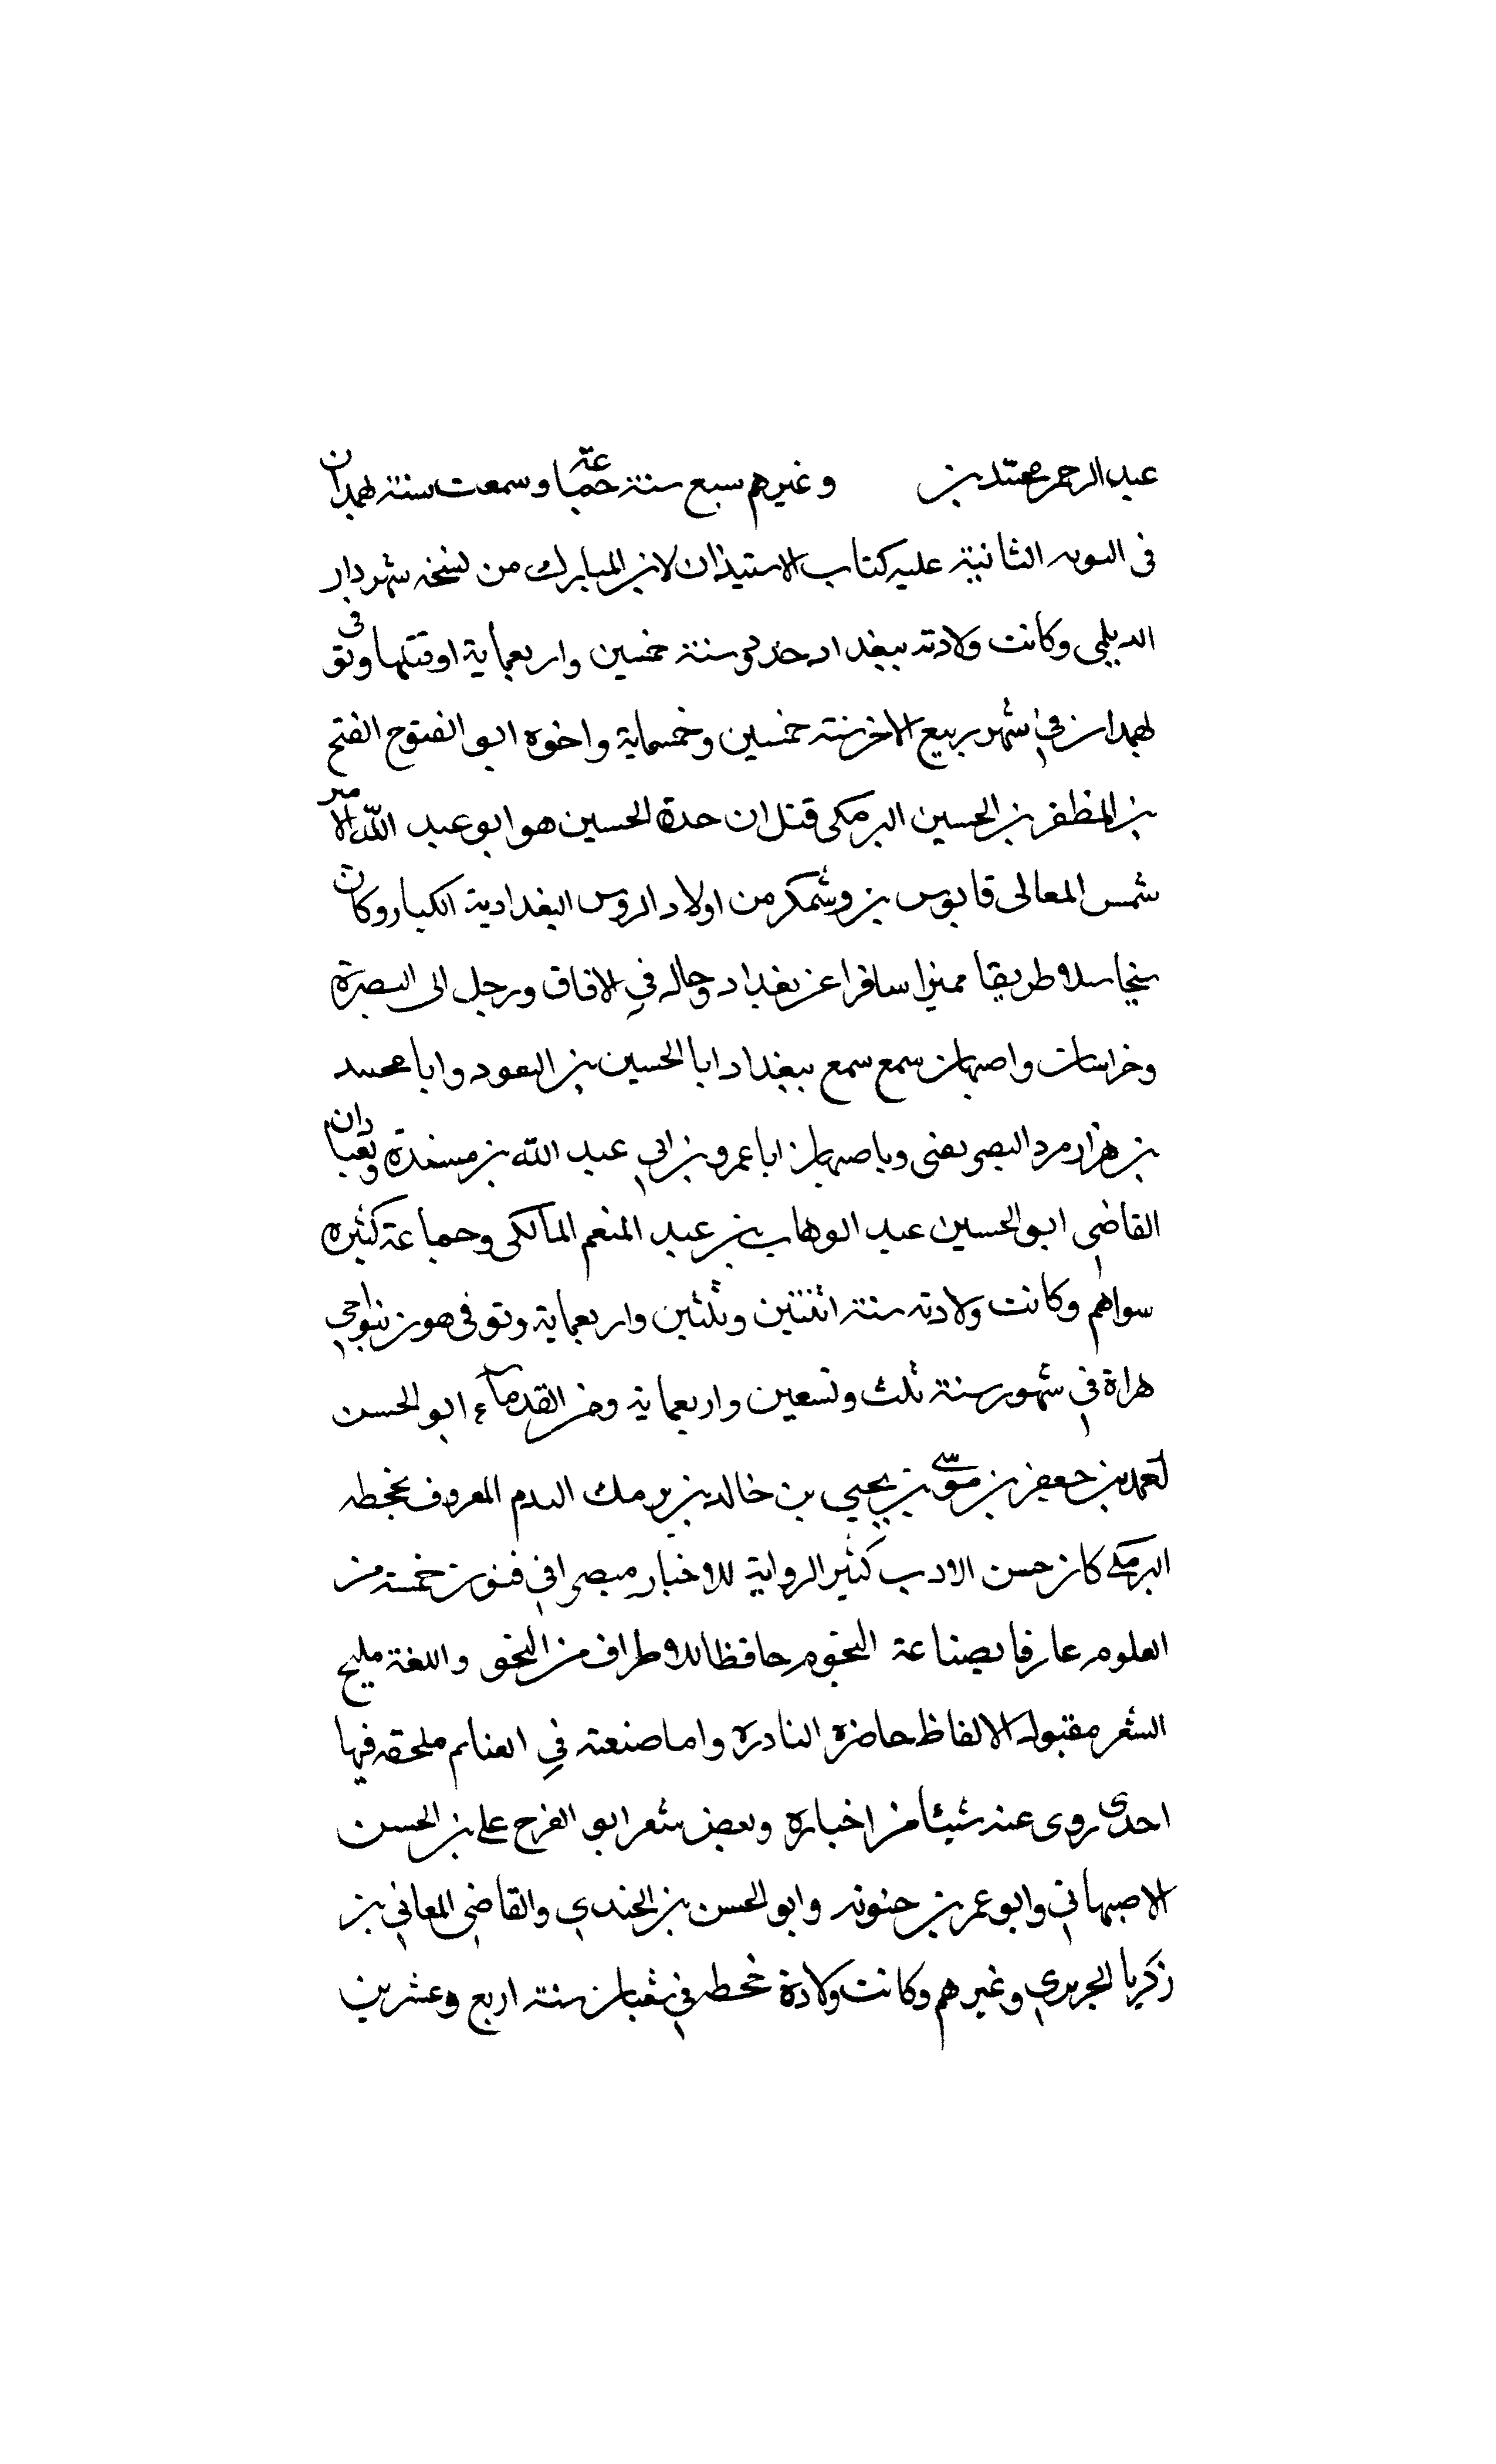 عبد الرحمن محمد بن وغيرهم سمع منه جماعة وسمعت منه بهمدان
فى النوبه الثانية عليه كتاب الاستيذان لابن المبارك من نسخه شهردار
الديلمى وكانت ولادته ببغداد فى سنة خمسين واربعماية او قبلها وتوفى
بهمدان في شهر ربيع الاخر سنة خمسين وخمسماية واخوه ابو الفتوح الفتح
بن المظفر بن الحسين البرمكى قيل ان جده الحسين هو ابو عبد الله الامير
شمس المعالى قابوس بن وشمكير من اولاد الروس البغدادية الكبار وكان
شيخا طريقا مميزا سافر عن بغداد وجال في الافاق ورحل الى البصرة
وخراسان واصبهان سمع سمع ببغداد ابا الحسين بن النعود وابا محمد
بن هزارمرد الصريفينى وباصبهان ابا عمرو بن ابي عبد الله بن مندة وبعبادان
القاضي ابو الحسين عبد الوهاب بن عبد المنعم المالكى وجماعة كثيره
سواهم وكانت ولادته سنة اثنتين وثلثين واربعماية وتوفى هو بنواحي
هراة في شهور سنة ثلث وتسعين واربعماية ومن القدماء ابو الحسن
احمد بن جعفر بن موسى بن يحيي بن خالد بن برمك النديم المعروف بجحظه
البرمكي كان حسن الادب كثير الرواية للاخبار متصرفا في فنون خمسة من
العلوم عارفا بصناعة النجوم حافظا لاطراف من النحو واللغة مليح
الشعر مقبوله الالفاظ حاضره النادرة واما صنعته في الغنا لم يلحقه فيها
احد روى عنه شيئا من اخباره وبعض شعر ابو الفرج علي بن الحسن
الاصبهاني وابو عمر بن حيويه وابو الحسن بن الجندي والقاضي المعافي بن
زكريا الجريري وغيرهم وكانت ولادة جحظه في شعبان سنة اربع وعشرين